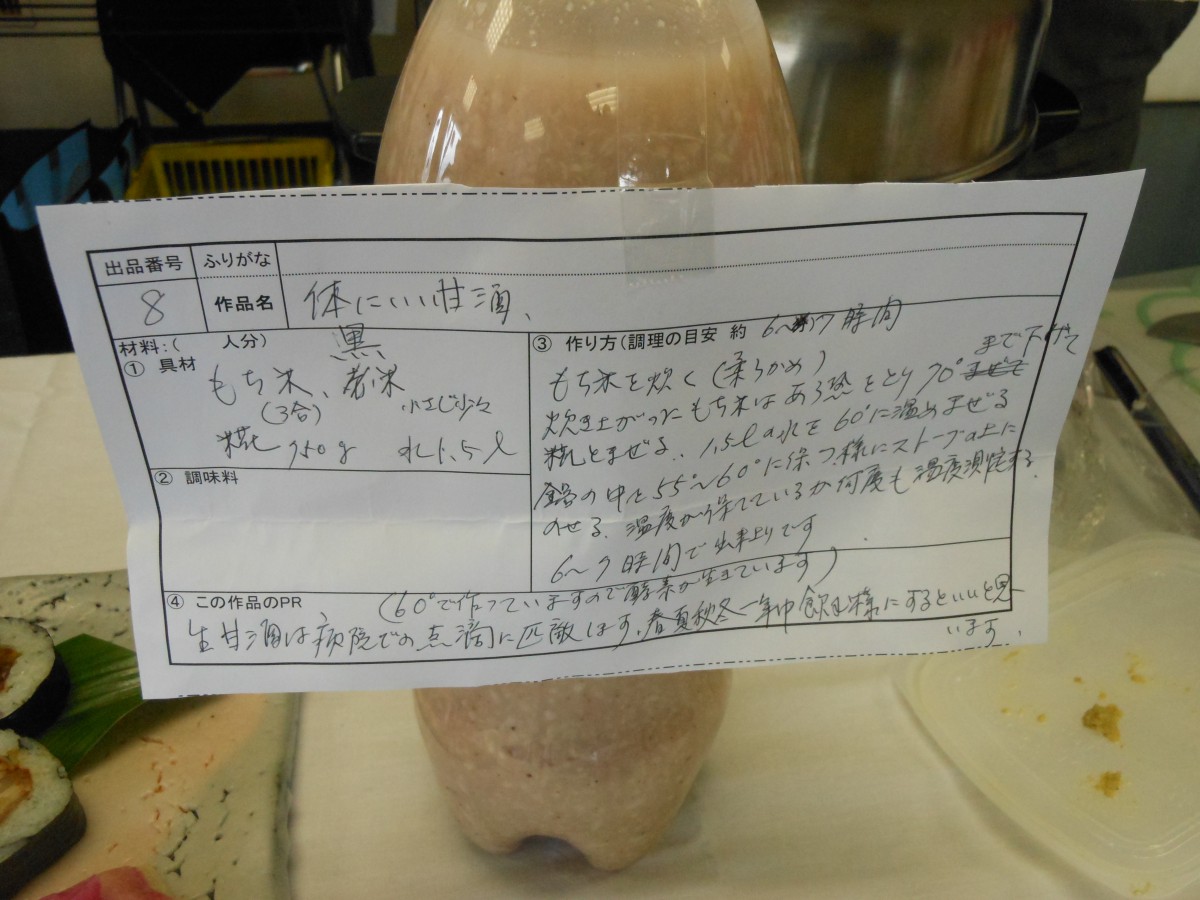 出品番号 ふりがな
8 作品名 体にいい甘酒、
材料:( 人分)
① 具材
もち米、黒米
(3合) 小さじ少々
糀 750g 水1.5ℓ
② 調味料
③ 作り方(調理の目安 約 6〜7時間
もち米を炊く(柔らかめ)
炊き上がったもち米はあら熱をとり70°まで下げて
糀とまぜる、1.5ℓの水を60°に温めまぜる
鍋の中を55°〜60°に保つ様にストーブの上に
のせる、温度が保てているか何度も温度測定する.
6〜7時間で出来上りです
④ この作品のPR (60°で作っていますので酵素が生きています)
生甘酒は病院での点滴に匹敵します、春夏秋冬一年中飲む様にするといいと思
います、